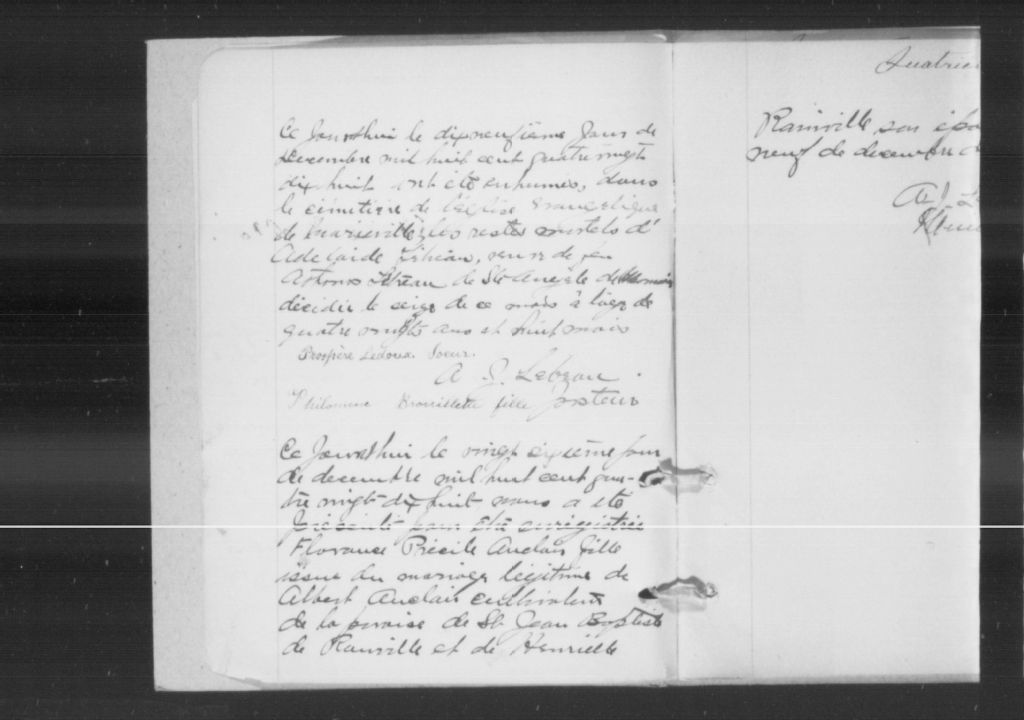 Ce Jourdhui le dixneufième jour de
decembre mil huit cent quatre vingt
dix huit ont été enhumés, dans
le cimetière de l'église evangelique
de Marieville les restes mortels d'
Adelaide, veuve de feu
de Ste Angèle de Monnoir
décidée le seize de ce mois à l'age de
quatre vingts ans et huit mois
Prospère Ledoux. Soeur.
A Lebeau
Philomene Brouillette fille pasteur
Ce Jourdhui le vingt jour
de decembre mil huit cent qua-
tre vingt dix huit nous a été
présenté pour être enrégistrée
Florance Auclair fille
issue du mariage légitime de
Albert Auclair cultivateur
de la paroise de St Jean Baptiste
de Rainville et de Henriette
Quatriè
Rainville son épou
neuf de decembre